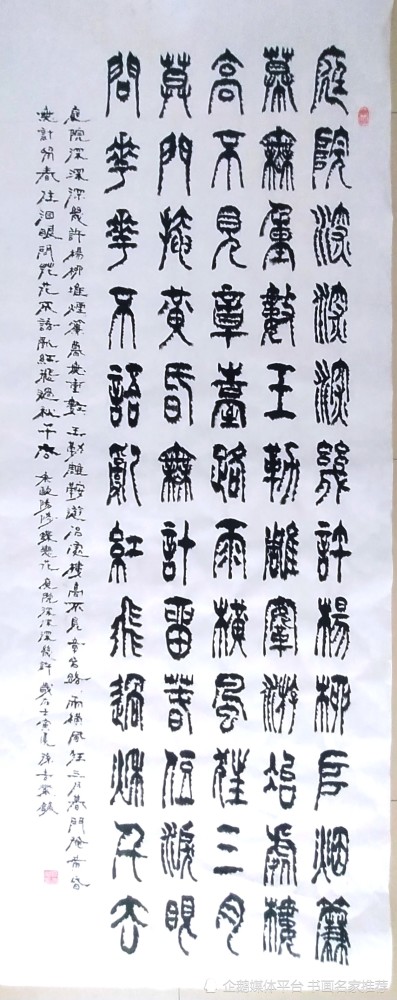 庭院深深深幾許楊柳堆烟簾
幕無重數玉勒雕鞍游冶處樓
高不見章臺路雨橫風狂三月
莫門掩黃昏無計留春住淚眼
問花花不語亂紅飛過秋千去
庭院深深深幾許楊柳堆煙簾幕無重數玉勒雕鞍遊冶處樓高不見章台路雨橫風狂三月暮門掩黃昏
無計留春住淚眼問花花不語亂紅飛過秋千去 宋歐陽修蝶戀花庭院深深深幾許
企鹅媒体平台 书画名家推荐